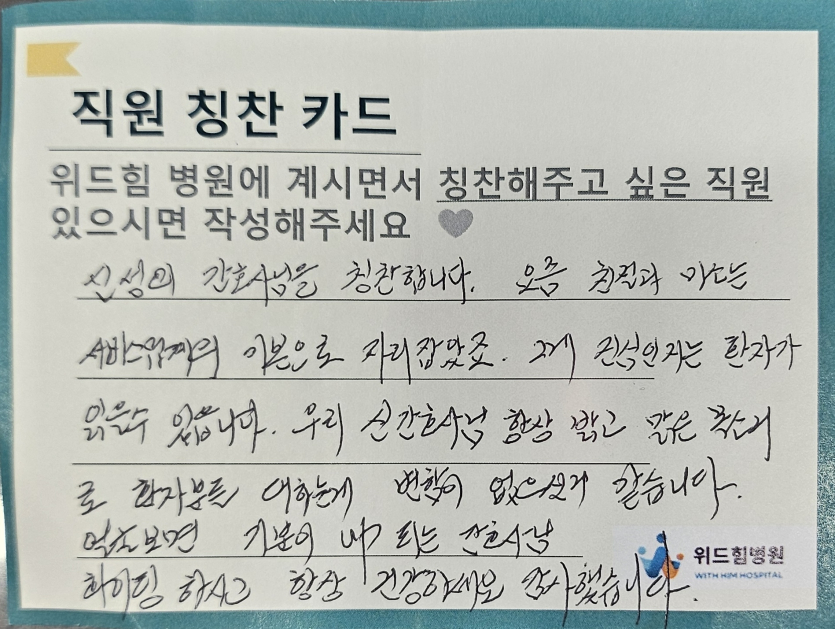 직원 칭찬 카드
위드힘 병원에 계시면서 칭찬해주고 싶은 직원
있으시면 작성해주세요 ♥
간호사님을 칭찬합니다. 요즘 친절과 미소는
서비스업계의 기본으로 자리잡았죠. 그게 진심인지는 환자가
읽을수 있습니다. 우리 신간호사님 항상 밝고 맑은 목소리
로 환자분들 대하는게 변함이 없으신거 같습니다.
보면 기분이 되는 간호사님
화이팅 하시고 항상 건강하세요 감사했습니다.
위드힘병원
WITH HIM HOSPITAL